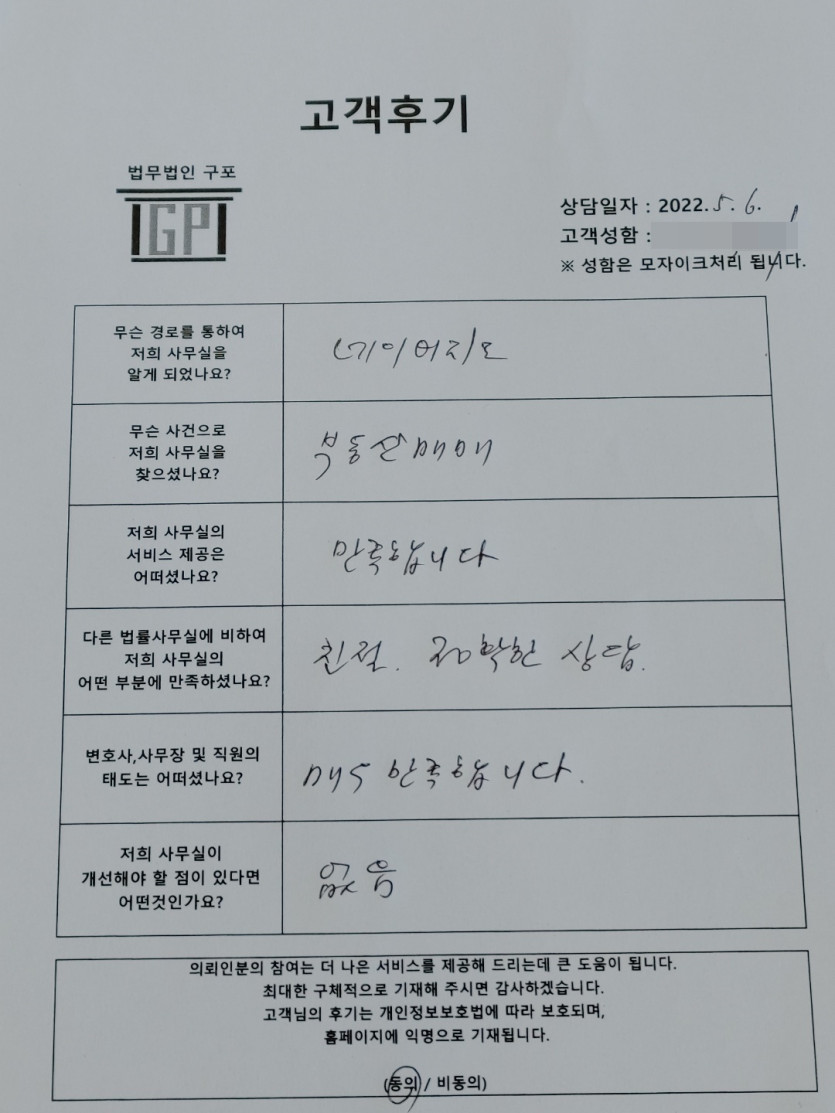 고객후기
법무법인 구포
IGPI
상담일자 : 2022.5.6.
고객성함 :
※ 성함은 모자이크처리 됩니다.
무슨 경로를 통하여
저희 사무실을
알게 되었나요?
네이버지도
무슨 사건으로
저희 사무실을
찾으셨나요?
부동산매매
저희 사무실의
서비스 제공은
어떠셨나요?
만족합니다
다른 법률사무실에 비하여
저희 사무실의
어떤 부분에 만족하셨나요?
친절. 정확한 상담.
변호사,사무장 및 직원의
태도는 어떠셨나요?
매우 만족합니다.
저희 사무실이
개선해야 할 점이 있다면
어떤것인가요?
없음
의뢰인분의 참여는 더 나은 서비스를 제공해 드리는데 큰 도움이 됩니다.
최대한 구체적으로 기재해 주시면 감사하겠습니다.
고객님의 후기는 개인정보보호법에 따라 보호되며,
홈페이지에 익명으로 기재됩니다.
(동의 / 비동의)